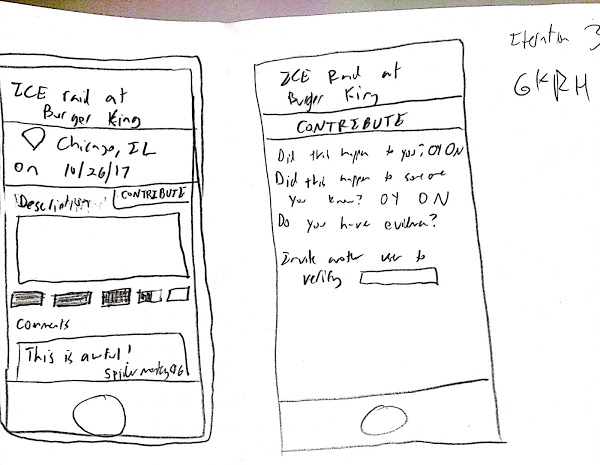 ICE raid at
Burger King
Chicago, IL
on 10/26/17
Description
CONTRIBUTE
Comments
This is awful!
ICE Raid at
Burger King
CONTRIBUTE
Did this happen to you? OY ON
Did this happen to someone
you know? OY ON
Do you have evidence?
Invite another user to
verify
Iteration 3